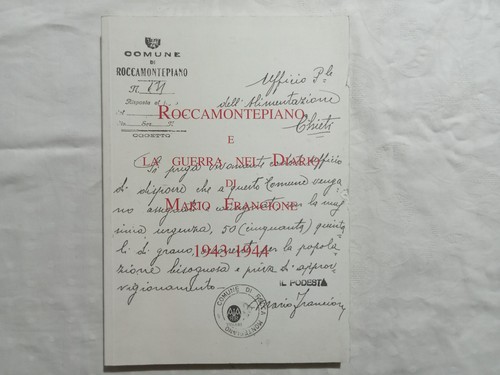 COMUNE
DI
ROCCAMONTEPIANO
N.
Risposta
OGGETTO
Ufficio P.le
dell'Alimentazione
Chieti
ROCCAMONTEPIANO
E
LA GUERRA NEL DIARIO
DI
MARIO FRANCIONE
1943-1944
Si prega
ufficio
di disporre che a questo Comune venga-
no assegnati
la mas-
sima urgenza, 50 (cinquanta) quinta-
li di grano,
per la popola-
zione bisognosa e priva di approv-
vigionamento
IL PODESTÀ
Mario Francione
COMUNE DI ROCCA MONTEPIANO